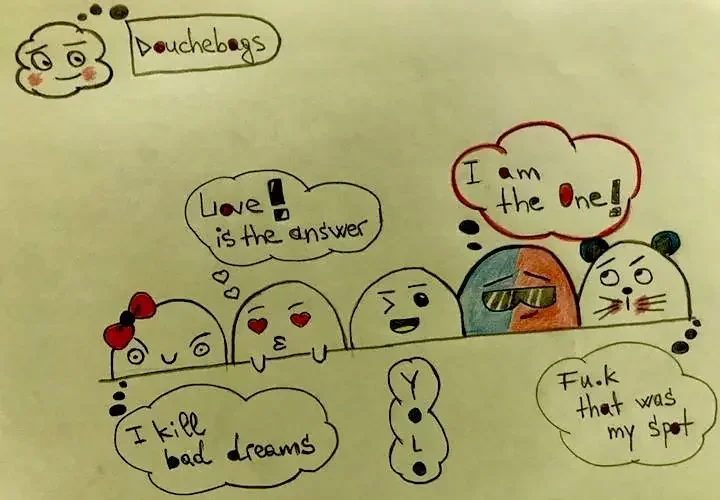 Douchebags
I am
the One!
Love!
is the answer
I kill
bad dreams
Y
O
L
O
Fu.k
that was
my spot